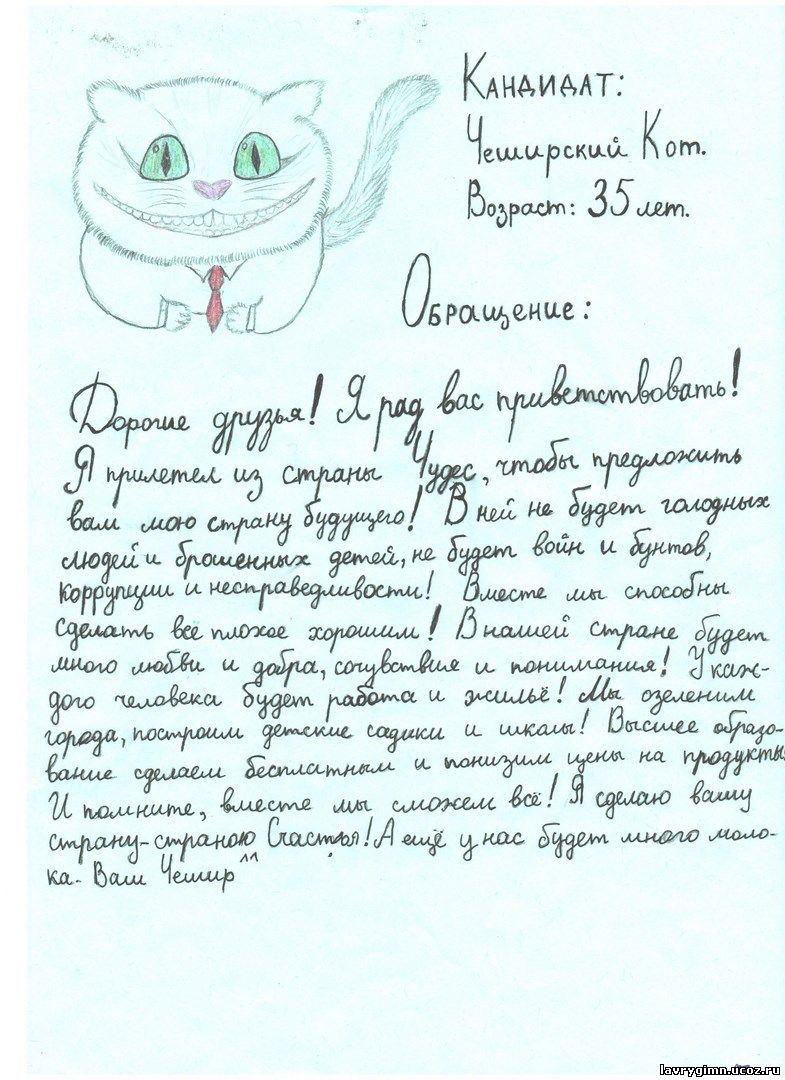 Кандидат:
Чеширский Кот.
Возраст: 35 лет.
Обращение:
Дорогие друзья! Я рад вас приветствовать!
Я прилетел из страны Чудес, чтобы предложить
вам мою страну будущего! В ней не будет голодных
людей и брошенных детей, не будет войн и бунтов,
коррупции и несправедливости! Вместе мы способны
сделать всё плохое хорошим! В нашей стране будет
много любви и добра, сочувствия и понимания! У каж-
дого человека будет работа и жильё! Мы озеленим
города, построим детские садики и школы! Высшее образо-
вание сделаем бесплатным и понизим цены на продукты
И помните, вместе мы сможем всё! Я сделаю вашу
страну-страною Счастья! А ещё у нас будет много моло-
ка- Ваш Чешир^^
lavrygimn.ucoz.ru